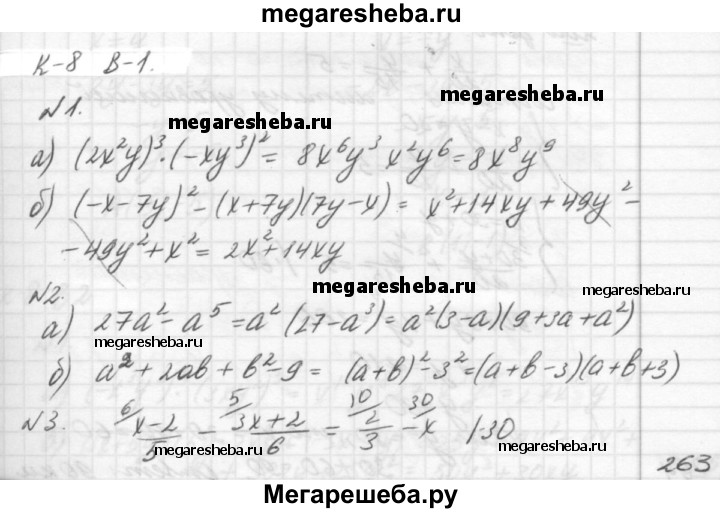 megaresheba.ru
К-8 В-1.
№1.
megaresheba.ru
megaresheba.ru
а) (2x²y)³·(-xy³)² = 8x⁶y³ x²y⁶ = 8x⁸y⁹
б) (-x-7y)² - (x+7y)(7y-x) = x²+14xy+49y² -
- 49y²+x² = 2x²+14xy
№2.
megaresheba.ru
megaresheba.ru
а) 27a² - a⁵ = a²(27-a³) = a²(3-a)(9+3a+a²)
megaresheba.ru
б) a²+2ab+b²-9 = (a+b)²-3² = (a+b-3)(a+b+3)
№3. ⁶/(x-2)/5 - ⁵/(3x+2)/6 = ¹⁰/2/3 - ³⁰/x |·30
megaresheba.ru
megaresheba.ru
263
Мегарешеба.ру